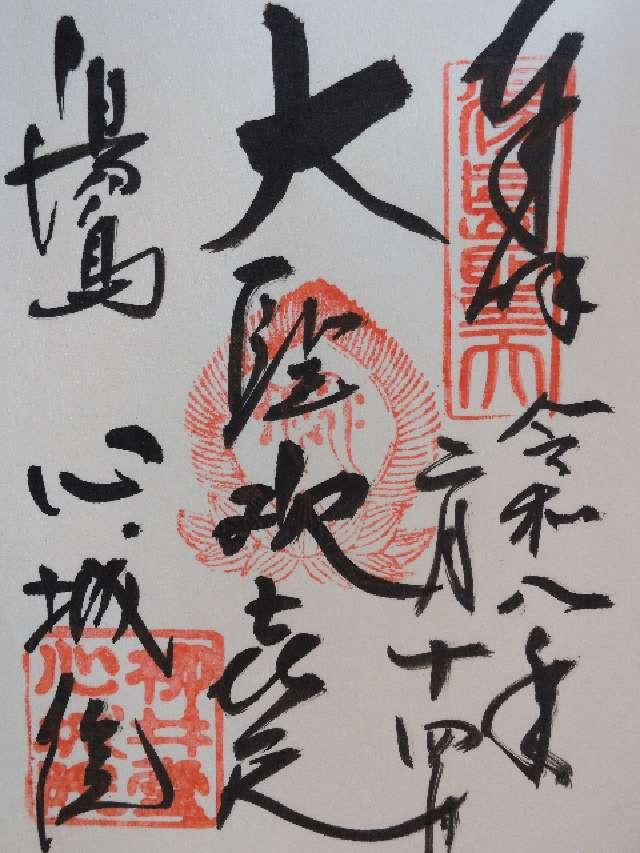 奉拝
湯島聖天
令和八年
二月十四日
大聖歓喜天
湯島
心城院
柳井堂
心城院